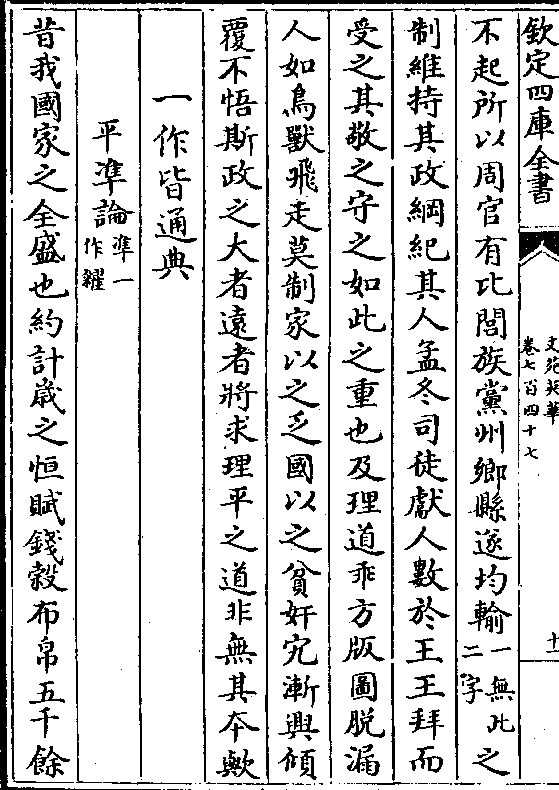 欽定四庫全書
文苑英華
卷七百四十七
十一
不起所以周官有比閭族黨州鄉縣遂均輸一無此二字之
制維持其政綱紀其人孟冬司徒獻人數於王王拜而
受之其敬之守之如此之重也及理道乖方版圖脱漏
人如鳥獸飛走莫制家以之乏國以之貧奸宄漸興傾
覆不悟斯政之大者遠者將求理平之道非無其本歟
一作皆通典
平準論準一作糴
昔我國家之全盛也約計歳之恒賦錢榖布帛五千餘